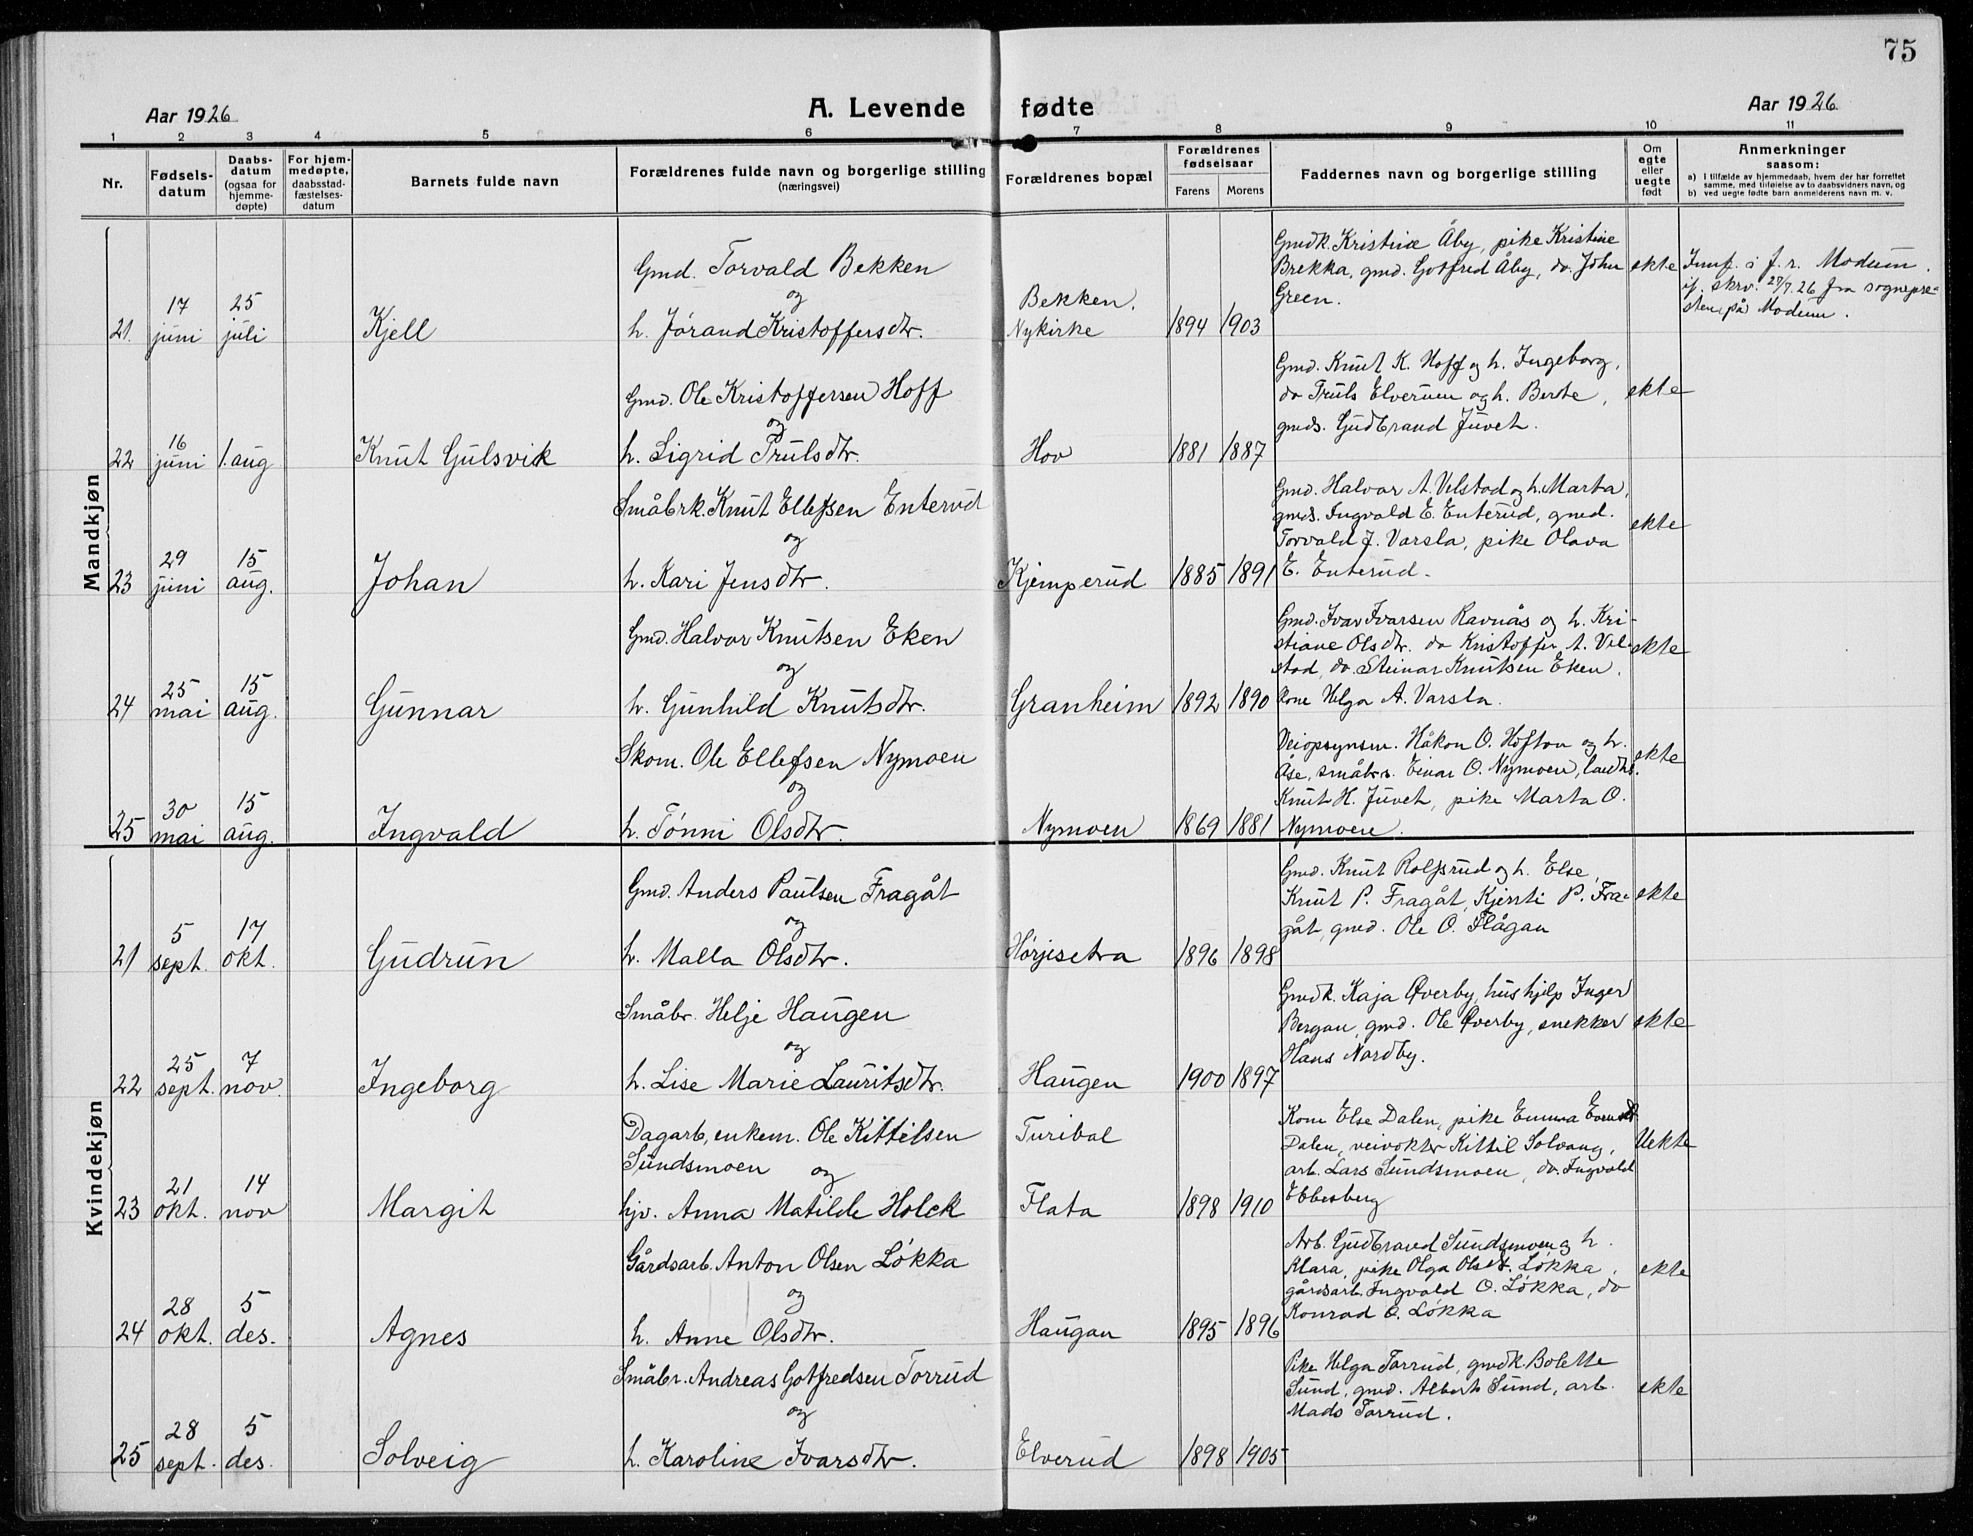 75
Aar 1926
A. Levende fødte
Aar 1926
1 2 3 4 5 6 7 8 9 10 11
Nr.
Fødsels-
datum
Daabs-
datum
(ogsaa for
hjemme-
døpte)
For hjem-
medøpte,
daabsstad-
fæstelses-
datum
Barnets fulde navn
Forældrenes fulde navn og borgerlige stilling
(næringsvei)
Forældrenes bopæl
Forældrenes
fødselsaar
Farens Morens
Faddernes navn og borgerlige stilling
Om
egte
eller
uegte
født
Anmerkninger
saasom:
a) I tilfælde av hjemmedaab, hvem der har forrettet
samme, med tilføielse av to daabsvidners navn, og
b) ved uegte fødte barn anmelderens navn m. v.
Mandkjøn
21. 17 juni 25 juli Kjell
Gmd. Torvald Bekken
og
h. Jørand Kristoffersdtr.
Bekken.
Nykirke 1894 1903
Gmdk. Kristine Åby, pike Kristine
Brekka, gmd. Gotfred Åby, do. John
Green.
ekte
Innf. i f. r. Modum
if. skrv. 27/7.26 fra sognepre-
sten på Modum.
22 16 juni 1. aug Knut Gulsvik
Gmd. Ole Kristoffersen Hoff
og
h. Sigrid Trulsdtr.
Hov 1881 1887
Gmd. Knut K. Hoff og h. Ingeborg,
do Truls Elverum og h. Berte,
gmds. Gudbrand Juvet.
ekte
23 29 juni 15 aug. Johan
Småbrk. Knut Ellefsen Enterud
og
h. Kari Jensdtr.
Kjemperud 1885 1891
Gmd. Halvor A. Velstad og h. Marta,
gmds. Ingvald E. Enterud, gmd.
Torvald J. Varsla, pike Olava
E. Enterud.
ekte
24 25 mai 15 aug. Gunnar
Gmd. Halvor Knutsen Eken
og
h. Gunhild Knutsdtr.
Granheim 1892 1890
Gmd. Ivar Ivarsen Ravnås og h. Kri-
stiane Olsdtr. do Kristoffer A. Vel-
stad, do. Steinar Knutsen Eken.
Kone Helga A. Varsla.
ekte
25 30 mai 15 aug. Ingvald
Skom. Ole Ellefsen Nymoen
og
h. Tønni Olsdtr.
Nymoen 1869 1881
Veiopsynsm. Håkon O. Hofton og h.
Åse, småbr. Einar O. Nymoen, landhs.
Knut H. Juvet, pike Marta O.
Nymoen.
ekte
Kvindekjøn
21 5 sept. 17 okt. Gudrun
Gmd. Anders Paulsen Fragåt
og
h. Malla Olsdtr.
Hørjesetra 1896 1898
Gmd. Knut Rolfsrud og h. Else,
Knut P. Fragåt, Kjersti P. Fra-
gåt, gmd. Ole O. Flågan
ekte
22 25 sept. 7 nov. Ingeborg
Småbr. Helje Haugen
og
h. Lise Marie Lauritsdtr.
Haugen 1900 1897
Gmdk. Kaja Øverby, hushjelp Inger
Bergan, gmd. Ole Øverby, snekker
Hans Nordby.
ekte
23 21 okt. 14 nov Margit
Dagarb, enkem. Ole Kittilsen
Sundsmoen og
hjv. Anna Matilde Holck
Turibal
Flata 1898 1910
Kone Else Dalen, pike Emma
Dalen, veivokter Kittil Solvang,
arb. Lars Sundsmoen, do. Ingvald
Ebbesberg
Uekte
24 28 okt. 5 des. Agnes
Gårdsarb. Anton Olsen Løkka
og
h. Anne Olsdtr.
Haugan 1895 1896
Arb. Gudbrand Sundsmoen og h.
Klara, pike Olga Olsdt. Løkka,
gårdsarb. Ingvald O. Løkka, do
Konrad O. Løkka
ekte
25 28 sept. 5 des. Solveig
Småbr. Andreas Gotfredsen Torrud
og
h. Karoline Ivarsdtr.
Elverud 1898 1905
Pike Helga Torrud, gmdk. Bolette
Sund, gmd. Albert Sund, arb.
Mads Torrud.
ekte